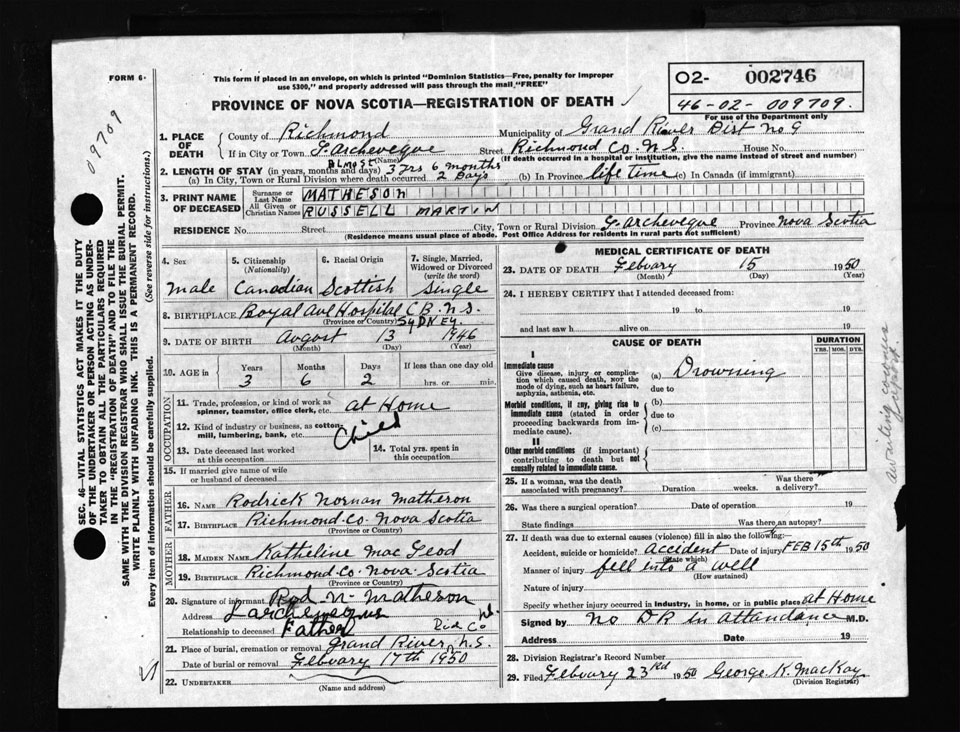 FORM 6.
This form if placed in an envelope, on which is printed "Dominion Statistics—Free, penalty for improper
use $300," and properly addressed will pass through the mail, "FREE"
02- 002746
46-02-009709.
For use of the Department only
PROVINCE OF NOVA SCOTIA—REGISTRATION OF DEATH ✓
09709
SEC. 46—VITAL STATISTICS ACT MAKES IT THE DUTY
OF THE UNDERTAKER OR PERSON ACTING AS UNDER-
TAKER TO OBTAIN ALL THE PARTICULARS REQUIRED
IN THE "REGISTRATION OF DEATH" AND TO FILE THE
SAME WITH THE DIVISION REGISTRAR WHO SHALL ISSUE THE BURIAL PERMIT.
WRITE PLAINLY WITH UNFADING INK. THIS IS A PERMANENT RECORD.
Every item of information should be carefully supplied. (See reverse side for instructions.)
1. PLACE OF DEATH County of Richmond Municipality of Grand River Dist No 9
If in City or Town L'archeveque Street Richmond Co. N.S. House No.
(Name) (If death occurred in a hospital or institution, give the name instead of street and number)
2. LENGTH OF STAY (in years, months and days) Almost 3 yrs 6 months
(a) In City, Town or Rural Division where death occurred 2 Days (b) In Province life time (c) In Canada (if immigrant)
3. PRINT NAME OF DECEASED Surname or Last Name MATHESON
All Given or Christian Names RUSSELL MARTIN
RESIDENCE No. Street City, Town or Rural Division L'archeveque Province Nova Scotia
(Residence means usual place of abode. Post Office Address for residents in rural parts not sufficient)
4. Sex 5. Citizenship (Nationality) 6. Racial Origin 7. Single, Married, Widowed or Divorced (write the word)
male Canadian Scottish Single
8. BIRTHPLACE Royal Ave Hospital C B. N.S.
(Province or Country) SYDNEY
9. DATE OF BIRTH Avgust 13 1946
(Month) (Day) (Year)
10. AGE in Years Months Days If less than one day
3 6 2 hrs. or min.
OCCUPATION
11. Trade, profession, or kind of work as spinner, teamster, office clerk, etc. at Home
12. Kind of industry or business, as cotton mill, lumbering, bank, etc. Child
13. Date deceased last worked at this occupation 14. Total yrs. spent in this occupation
15. If married give name of wife or husband of deceased
FATHER
16. Name Rodrick Norman Matheson
17. Birthplace Richmond Co. Nova Scotia
(Province or Country)
MOTHER
18. Maiden Name Katheline Mac Leod
19. Birthplace Richmond-Co-Nova-Scotia
(Province or Country)
20. Signature of informant Rod N- Matheson
Address Larcheveque Rich Co
Relationship to deceased Father
21. Place of burial, cremation or removal Grand River, N.S.
Date of burial or removal Febuary 17th 1950
22. UNDERTAKER
(Name and address)
MEDICAL CERTIFICATE OF DEATH
23. DATE OF DEATH Febuary 15 1950
(Month) (Day) (Year)
24. I HEREBY CERTIFY that I attended deceased from:
19 to 19
and last saw h alive on 19
CAUSE OF DEATH DURATION
YRS. MOS. DYS.
I
Immediate cause
Give disease, injury or complication which caused death, NOT the mode of dying, such as heart failure, asphyxia, asthenia, etc.
(a) Drowning
due to
Morbid conditions, if any, giving rise to immediate cause (stated in order proceeding backwards from immediate cause).
(b)
due to
(c)
II
Other morbid conditions (if important) contributing to death but not causally related to immediate cause.
awaiting
25. If a woman, was the death associated with pregnancy? Duration weeks. Was there a delivery?
26. Was there a surgical operation? Date of operation 19
State findings Was there an autopsy?
27. If death was due to external causes (violence) fill in also the following:
Accident, suicide or homicide? accident Date of injury FEB 15th 1950
(State which)
Manner of injury fell into a well
(How sustained)
Nature of injury
Specify whether injury occurred in industry, in home, or in public place at Home
Signed by No DR in attandance M.D.
Address Date 19
28. Division Registrar's Record Number
29. Filed Febuary 23rd 1950 George K. MacKay
(Division Registrar)